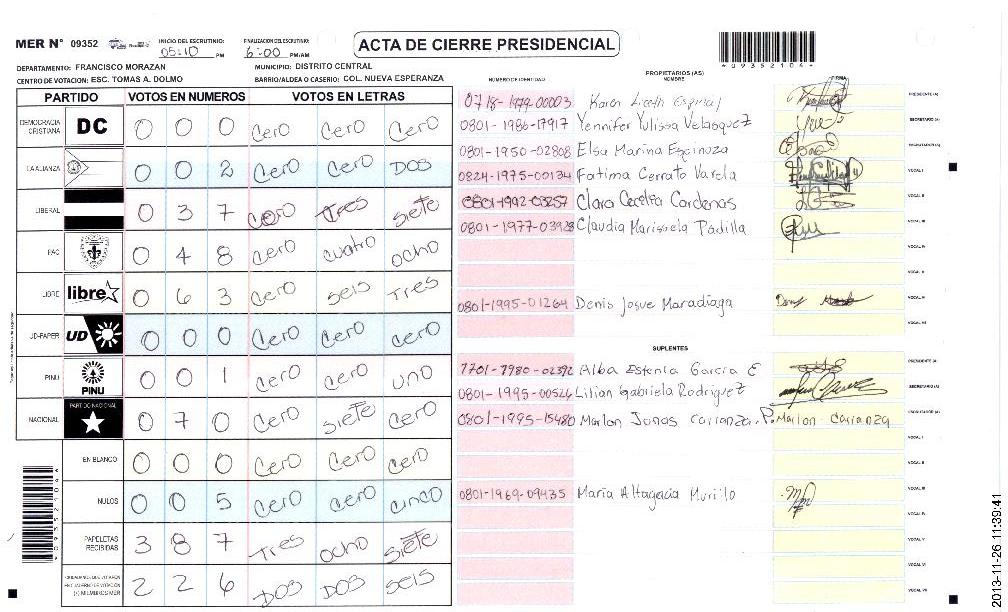 MER N° 09352 INICIO DEL ESCRUTINIO: 05:10 PM FINALIZACION DEL ESCRUTINIO: 6:00 PM/AM
ACTA DE CIERRE PRESIDENCIAL
*09352104*
DEPARTAMENTO: FRANCISCO MORAZAN MUNICIPIO: DISTRITO CENTRAL
CENTRO DE VOTACION: ESC. TOMAS A. DOLMO BARRIO/ALDEA O CASERIO: COL. NUEVA ESPERANZA
PARTIDO VOTOS EN NUMEROS VOTOS EN LETRAS
DEMOCRACIA CRISTIANA DC 0 0 0 Cero Cero Cero
LA ALIANZA 0 0 2 Cero Cero DOS
LIBERAL 0 3 7 Cero Tres siete
PAC 0 4 8 Cero cuatro ocho
LIBRE libre 0 6 3 Cero seis Tres
UD-FAPER UD 0 0 0 Cero Cero Cero
PINU PINU 0 0 1 Cero Cero uno
NACIONAL PARTIDO NACIONAL 0 7 0 Cero siete Cero
EN BLANCO 0 0 0 Cero Cero Cero
NULOS 0 0 5 Cero Cero cinco
PAPELETAS RECIBIDAS 3 8 7 Tres ocho siete
CIUDADANOS QUE VOTARON EN CUADERNO DE VOTACION (+) MIEMBROS MER 2 2 6 DOS DOS seis
NUMERO DE IDENTIDAD PROPIETARIOS (AS) NOMBRE FIRMA
0718-1979-00003 Karen Liceth PRESIDENTE (A)
0801-1986-17917 Yennifer Yulissa Velasquez SECRETARIO (A)
0801-1950-02808 Elsa Marina Espinoza ESCRUTADOR (A)
0824-1975-00134 Fatima Cerrato Varela VOCAL I
0801-1992-03257 Clara Cecelia Cardenas VOCAL II
0801-1977-03928 Claudia Marissela Padilla VOCAL III
VOCAL IV
VOCAL V
0801-1995-01264 Denis Josue Maradiaga VOCAL VI
VOCAL VII
SUPLENTES
7701-7980-02392 Alba Estenia Garcia E PRESIDENTE (A)
0801-1995-00526 Lilian Gabriela Rodriguez SECRETARIO (A)
0801-1995-15480 Marlon Jonas Carranza P. Marlon Carranza ESCRUTADOR (A)
VOCAL I
VOCAL II
0801-1969-09435 Maria Altagacia Murillo VOCAL III
VOCAL IV
VOCAL V
VOCAL VI
VOCAL VII
*09352104*
2013-11-26 11:39:41